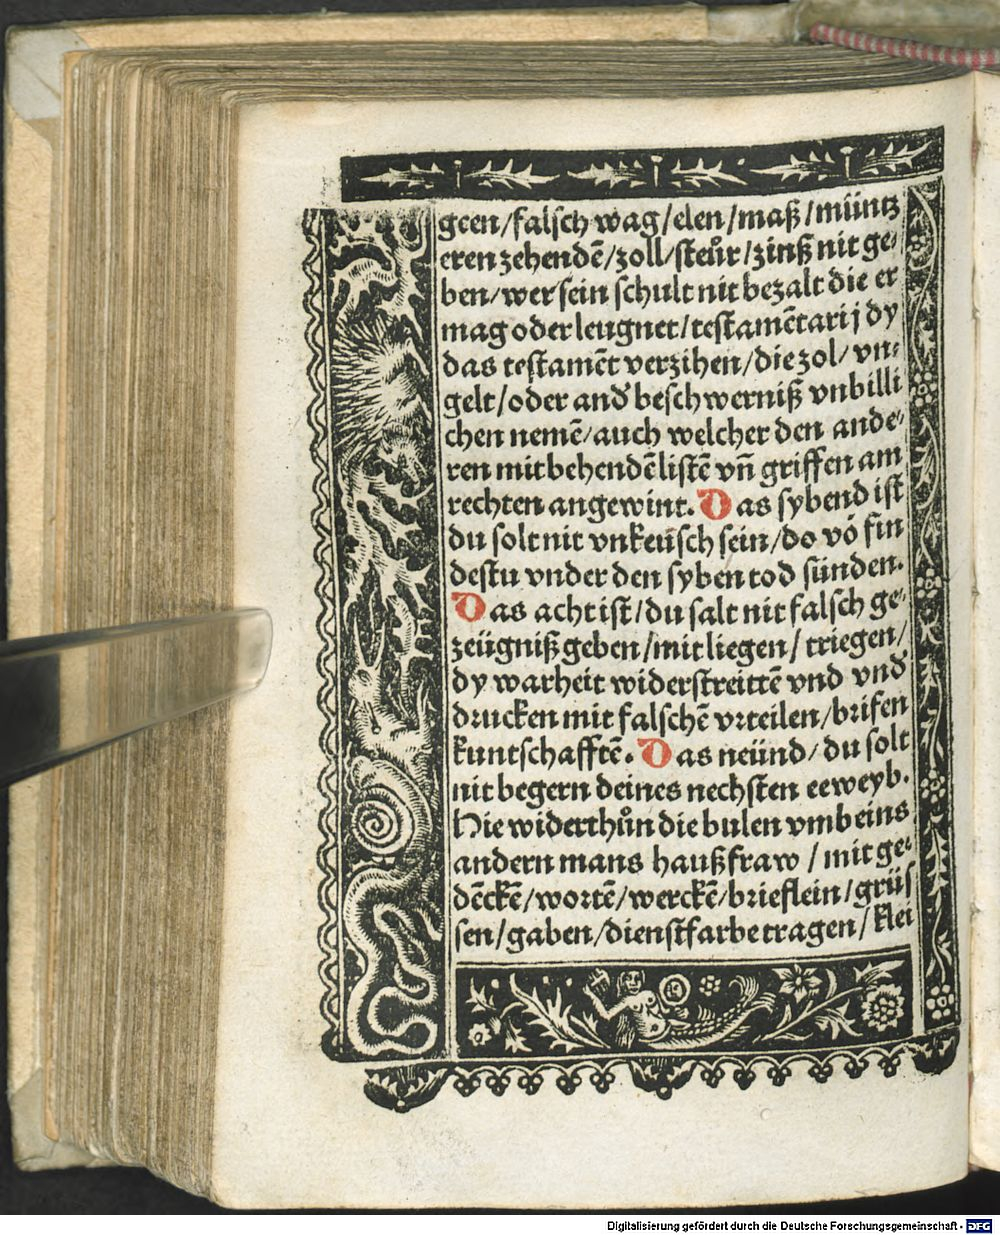 geen/falsch wag/elen/maß/müntz
eren zehendē/zoll/steůr/zinß nit ge⸗
ben/wer sein schult nit bezalt die er
mag oder leugnet/testamētarij dy
das testamēt verzihen/die zol/vn⸗
gelt/oder and͛ beschwerniß vnbilli
chen nemē/auch welcher den ande⸗
ren mit behendē listē vn̄ griffen am
rechten angewint. Das sybend ist
du solt nit vnkeüsch sein/do vō fin
destu vnder den syben tod sünden.
Das acht ist/du salt nit falsch ge⸗
zeügniß geben/mit liegen/triegen/
dy warheit widerstreittē vnd vnd͛
drucken mit falschē vrteilen/brifen
kuntschafftē. Das neünd/du solt
nit begern deines nechsten eeweyb.
Hie widerthůn die bulen vmb eins
andern mans haußfraw/mit ge⸗
dēckē/wortē/werckē/brieflein/grüs
sen/gaben/dienstfarbe tragen/klei
Digitalisierung gefördert durch die Deutsche Forschungsgemeinschaft - DFG